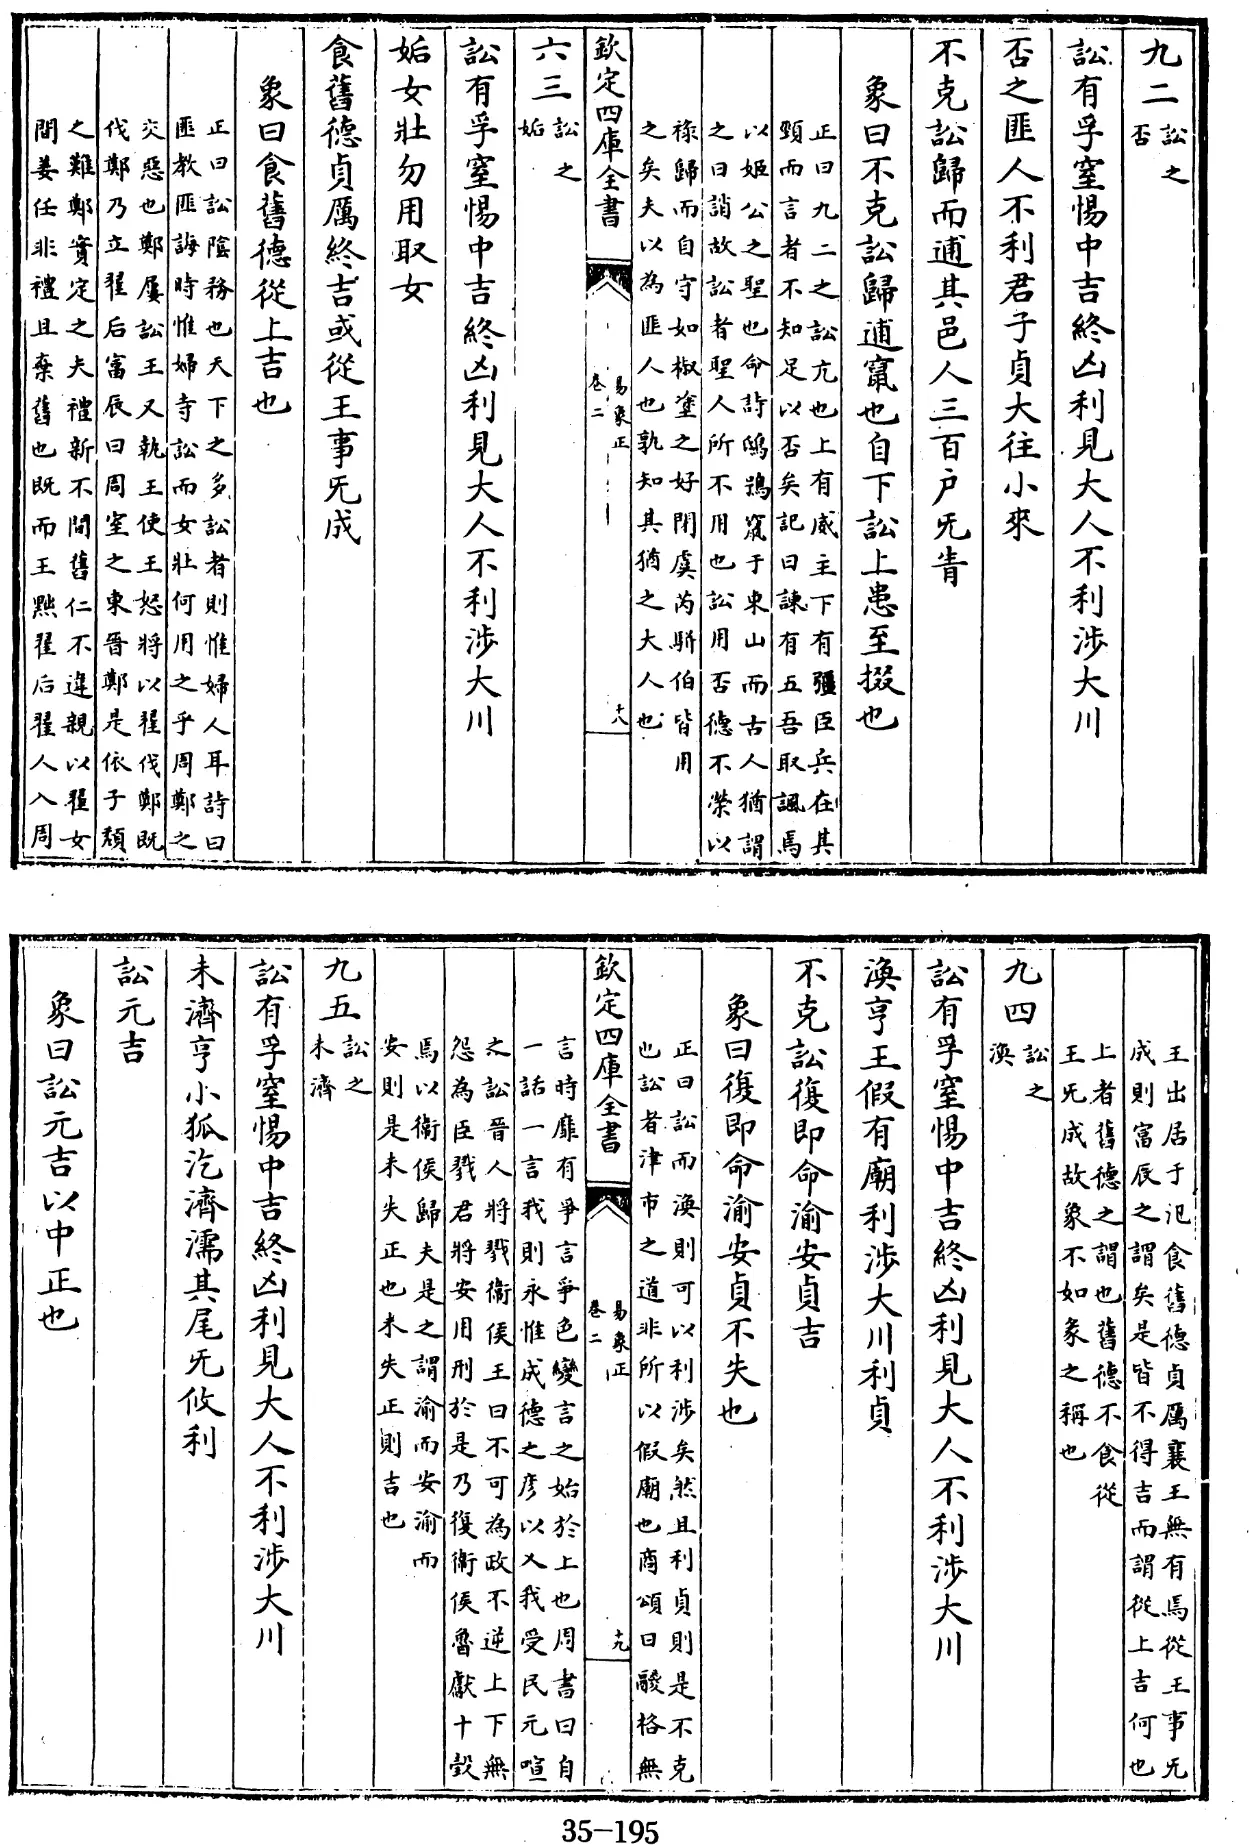 九二訟之否
訟有孚窒惕中吉終凶利見大人不利涉大川
否之匪人不利君子貞大往小來
不克訟歸而逋其邑人三百户旡眚
象曰不克訟歸逋竄也自下訟上患至掇也
正曰九二之訟亢也上有威主下有彊臣兵在其
頸而言者不知足以否矣記曰諫有五吾取諷焉
以姬公之聖也命詩鴟鴞竄于東山而古人猶謂
之曰誚故訟者聖人所不用也訟用否德不榮以
祿歸而自守如椒塗之好閉虞芮駢伯皆用
之矣夫以為匪人也孰知其猶之大人也
欽定四庫全書
易象正
卷二
十八
六三訟之姤
訟有孚窒惕中吉終凶利見大人不利涉大川
姤女壯勿用取女
食舊德貞厲終吉或從王事旡成
象曰食舊德從上吉也
正曰訟陰務也天下之多訟者則惟婦人耳詩曰
匪教匪誨時惟婦寺訟而女壯何用之乎周鄭之
交惡也鄭屢訟王又執王使王怒將以翟伐鄭既
伐鄭乃立翟后富辰曰周室之東晉鄭是依子頽
之難鄭實定之夫禮新不間舊仁不違親以翟女
間姜任非禮且棄舊也既而王黜翟后翟人入周
王出居于汜食舊德貞厲襄王無有焉從王事旡
成則富辰之謂矣是皆不得吉而謂從上吉何也
上者舊德之謂也舊德不食從
王旡成故象不如彖之稱也
九四訟之渙
訟有孚窒惕中吉終凶利見大人不利涉大川
渙亨王假有廟利涉大川利貞
不克訟復即命渝安貞吉
象曰復即命渝安貞不失也
正曰訟而渙則可以利涉矣然且利貞則是不克
也訟者津市之道非所以假廟也商頌曰鬷格無
欽定四庫全書
易象正
卷二
十九
言時靡有爭言爭色變言之始於上也周書曰自
一話一言我則永惟成德之彦以乂我受民元咺
之訟晉人將戮衞侯王曰不可為政不逆上下無
怨為臣戮君將安用刑於是乃復衞侯魯獻十瑴
焉以衞侯歸夫是之謂渝而安渝而
安則是未失正也未失正則吉也
九五訟之未濟
訟有孚窒惕中吉終凶利見大人不利涉大川
未濟亨小狐汔濟濡其尾旡攸利
訟元吉
象曰訟元吉以中正也
35-195